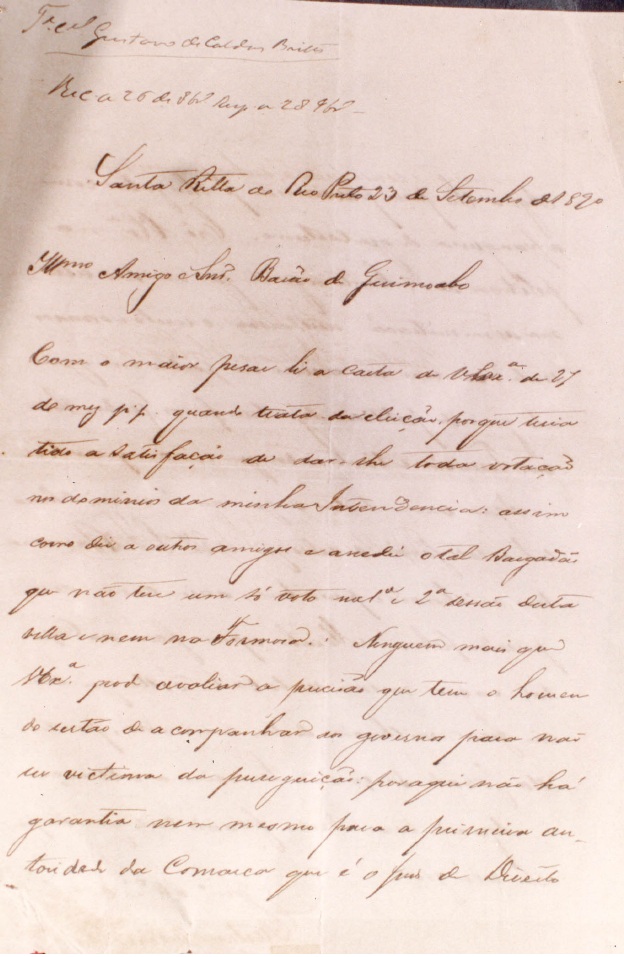 Tn.e cel Gustavo de Caldas Britto
Rec. a 26 de 8bro resp. a 28 9bro
Santa Ritta do Rio Preto 23 de Setembro de 1890
Illmo Amigo e Snr. Barão de Geremoabo
Com o maior pesar li a carta de V. Exa. de 27
de mez p. p. quando trata da eleição, porque teria
tido a satisfação de dar-lhe toda votação
nos dominios da minha Intendencia: assim
como dei a outros amigos e a
que não teve um só voto na 1ª e 2ª sessão desta
villa e nem na Formosa. Ninguem mais que
V. Exa. pode avaliar a precisão que tem o homem
do sertão de acompanhar ao governo para não
ser victima da perseguição: por aqui não há
garantia nem mesmo para a primeira au-
toridade da Comarca que é o Juis de Direito